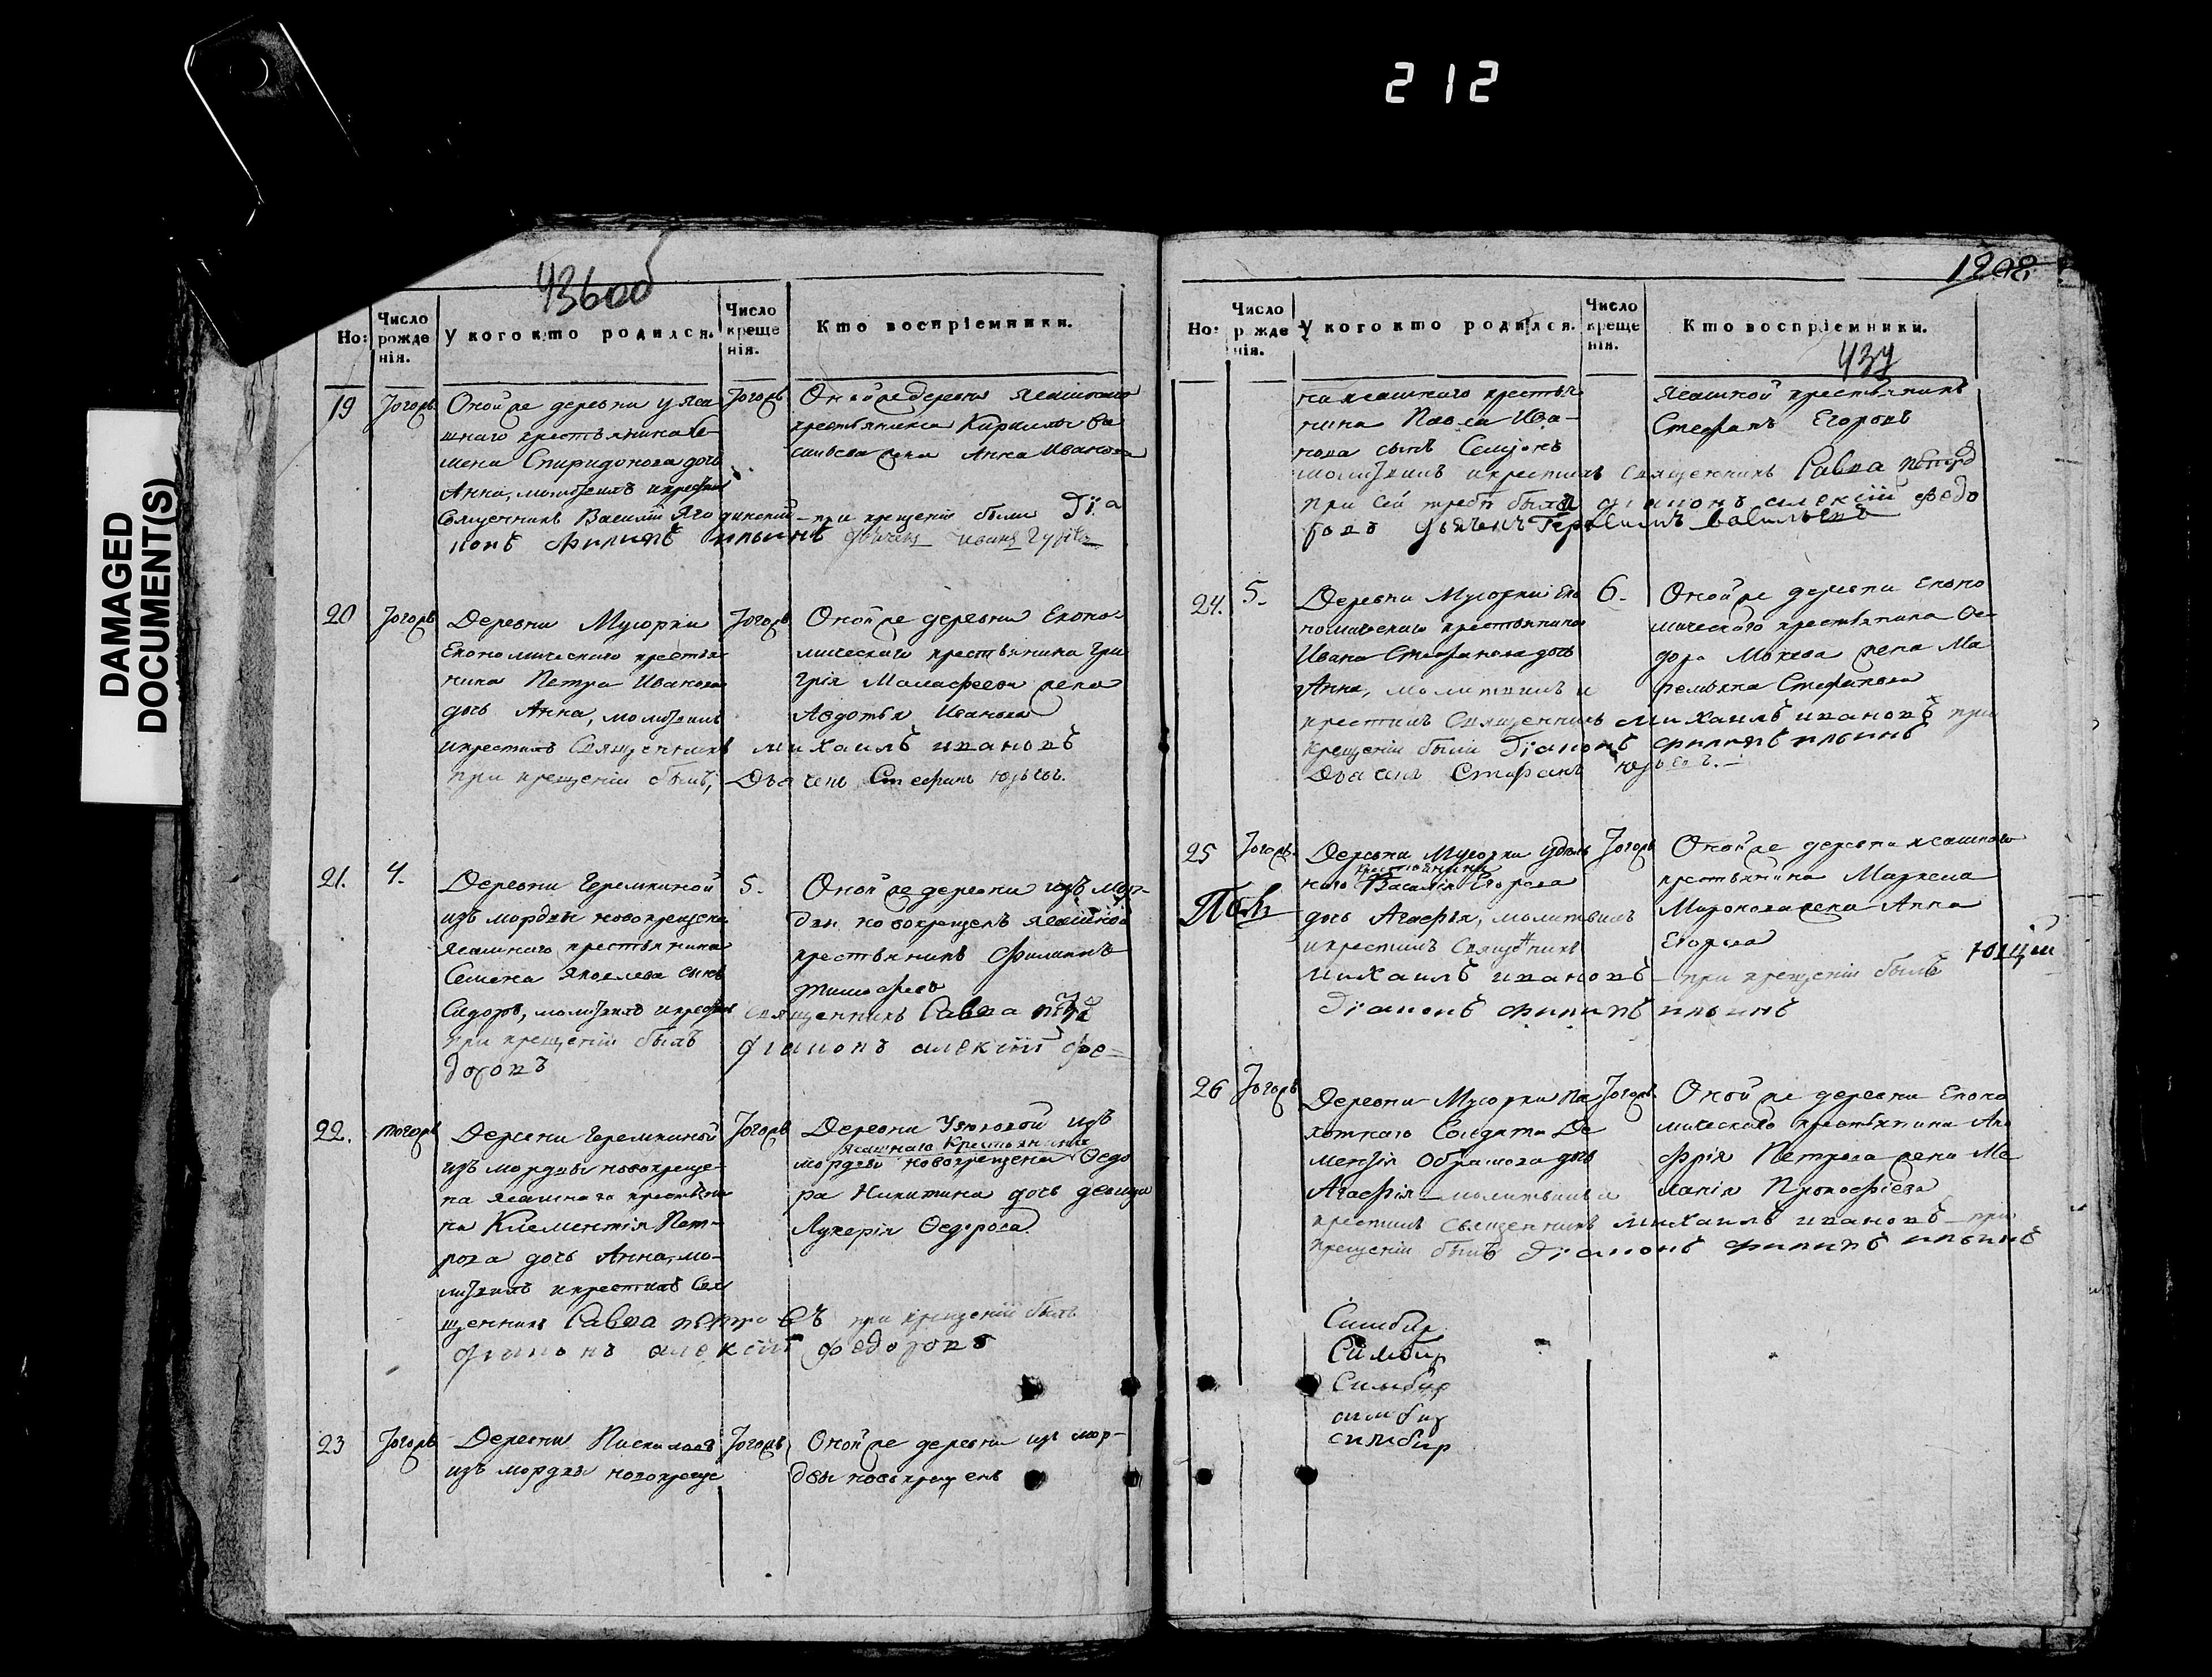 212
DAMAGED
DOCUMENT(S)
436об
Но:
Число рожденія.
У кого кто родился.
Число крещенія.
Кто воспріемники.
19
Тогожъ
Оной же деревни у яса
шнаго крестьянина Се
мена Спиридонова дочь
Анна, молитвилъ и крестилъ
Священникъ Василий Ягодинский - при крещении были Дїа
конъ Филипъ Ильинъ дьячекъ иванъ
Тогожъ
Оной же деревни ясашнаго
крестьянина Кирилы Ва
сильева жена Анна Иванова
20
Тогожъ
Деревни Мусорки
Економическаго крестья
нина Петра Иванова
дочь Анна, молитвилъ
и крестилъ Священникъ михаилъ ивановъ
при крещении былъ, Дьячекъ Стефанъ Юрьевъ.
Тогожъ
Оной же деревни Еконо
мическаго крестьянина Гри
горія Малафеева жена
Авдотья Иванова
21.
4.
Деревни Черемкиной
изъ мордвы новокрещена
ясашнаго крестьянина
Семена Яковлева сынъ
Сидоръ, молитвилъ и крестилъ священникъ Савва
при крещении былъ дїаконъ алексїй фе=
доровъ
5.
Оной же деревни изъ мор-
двы новокрещенъ ясашной
крестьянинъ Филипъ
Тимофеевъ
22.
тогожъ
Деревни Черемкиной
изъ мордвы новокреще-
на ясашнаго крестьяни
на Клементія Пет-
рова дочь Анна, мо-
литвилъ и крестилъ Свя
щенникъ Савва петровъ при крещении былъ
дїаконъ алексїй федоровъ
Тогожъ
Деревни Узюковой изъ
ясашнаго крестьянина
мордвы новокрещена Ѳедо
ра Никитина дочь девица
Лукерія Ѳедорова
23
Тогожъ
Деревни
изъ мордвы новокреще
Тогожъ
Оной же деревни изъ мор-
двы новокрещенъ
1208
437
Но:
Число рожденія.
У кого кто родился.
Число крещенія.
Кто воспріемники.
на ясашнаго крестья
нина Павла Ива-
нова сынъ Семіонъ
молитвилъ и крестилъ священникъ Савва петровъ
при сей требѣ были дїаконъ алексїй федо
ровъ дьячекъ Герасимъ васильевъ
ясашной крестьянинъ
Стефанъ Егоровъ
24.
5.
Деревни Мусорки Еко
номическаго крестьянина
Ивана Стефанова дочь
Анна, молитвилъ и
крестилъ Священникъ михаилъ ивановъ при
крещении были дїаконъ филипъ ильинъ
Дьячекъ Стефанъ Юрьевъ. -
6.
Оной же деревни Еконо
мическаго крестьянина Ѳе-
дора Мокева жена Ма
ремьяна Стефанова
25
Тогожъ.
Деревни Мусорки удѣль
наго крестьянина Василія Егорова
дочь Агафія, молитвилъ
и крестилъ Священникъ
михаилъ ивановъ - при крещении былъ
дїаконъ филипъ ильинъ
Тогожъ
Оной же деревни ясашнаго
крестьянина Маркела
Миронова жена Анна
Егорова
26
Тогожъ
Деревни Мусорки Па
хотнаго Солдата Де
ментія Обрамова дочь
Агафія - молитвилъ и
крестилъ священникъ михаилъ ивановъ - при
крещении былъ дїаконъ филипъ ильинъ
Тогожъ.
Оной же деревни Еконо
мическаго крестьянина Ано
фрія Петрова жена Ме
ланія Прокофіева
Симбир
Симбир
Симбир
симбир
симбир